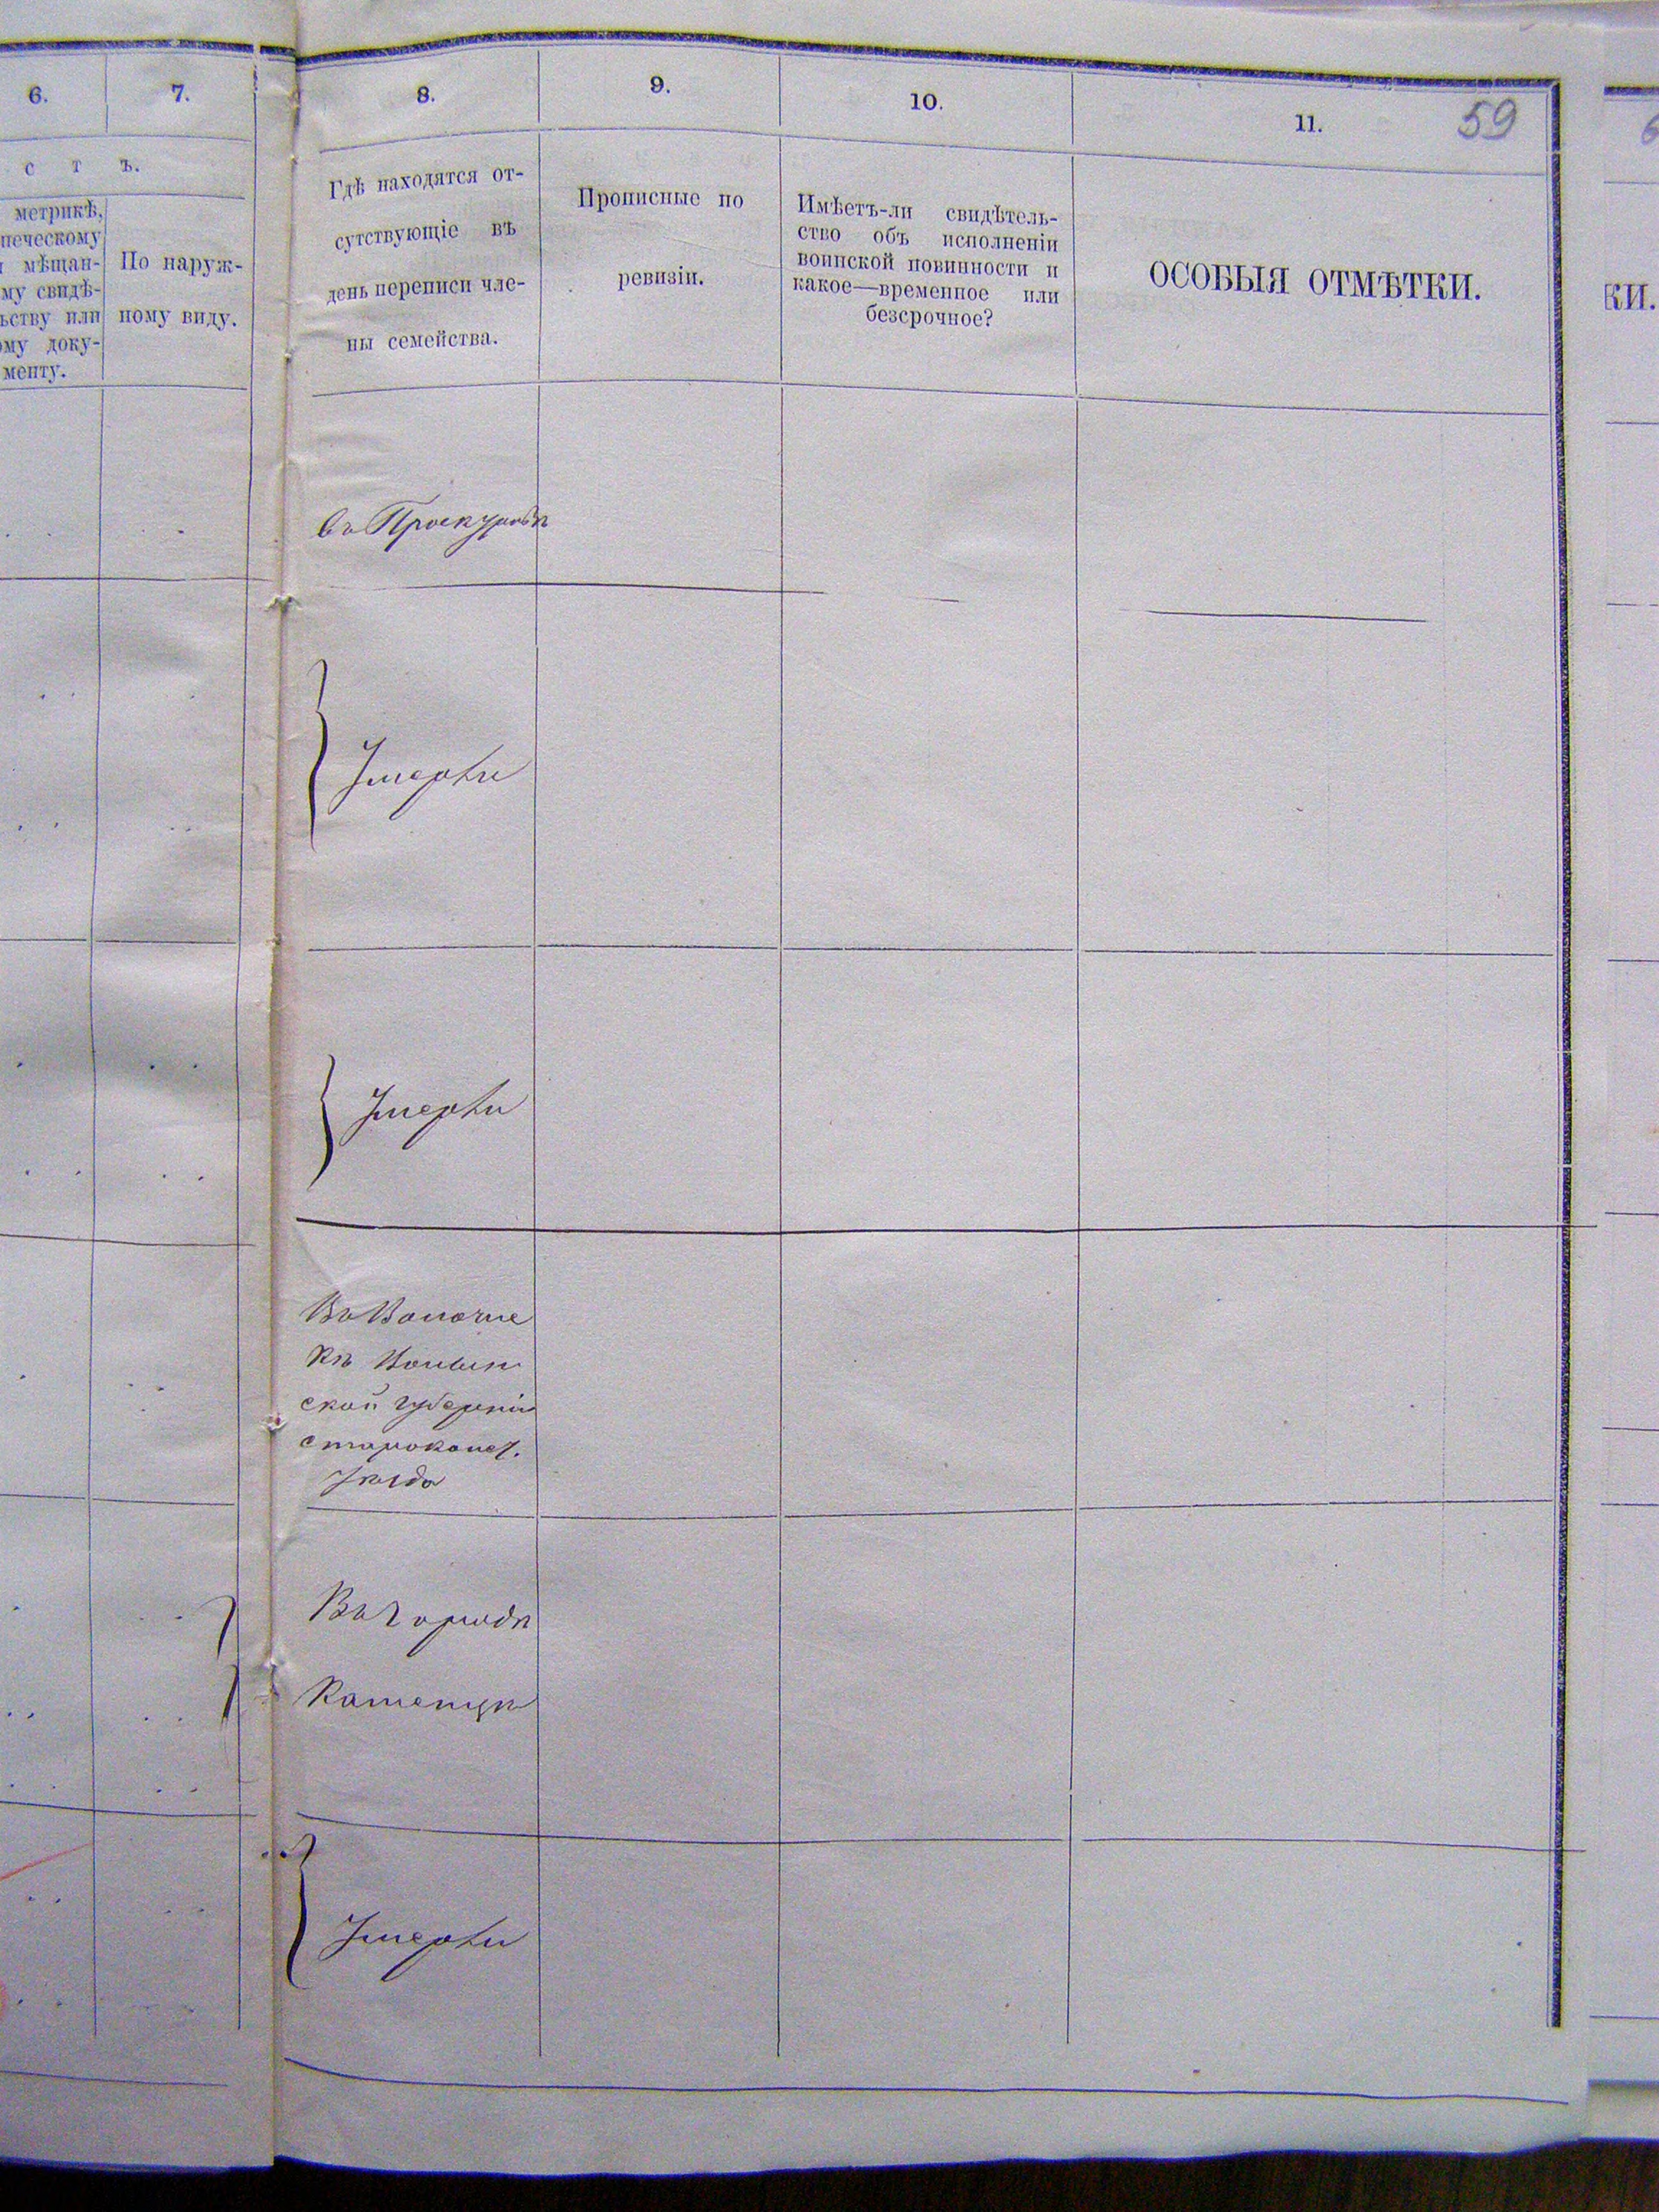 6.
7.
8.
9.
10.
11.
59
с т ъ.
метрикѣ,
печескому
мѣщан-
му свидѣ-
ьству или
ому доку-
менту.
По наруж-
ному виду.
Гдѣ находятся от-
сутствующіе въ
день переписи чле-
ны семейства.
Прописные по
ревизіи.
Имѣетъ-ли свидѣтель-
ство объ исполненіи
воинской повинности и
какое—временное или
безсрочное?
ОСОБЫЯ ОТМѢТКИ.
КИ.
въ Проскуровѣ
Умерли
Умерли
Въ Волочис
кѣ Волын
ской губерніи
староконст.
уѣзда
Въ городѣ
Каменцѣ
Умерли